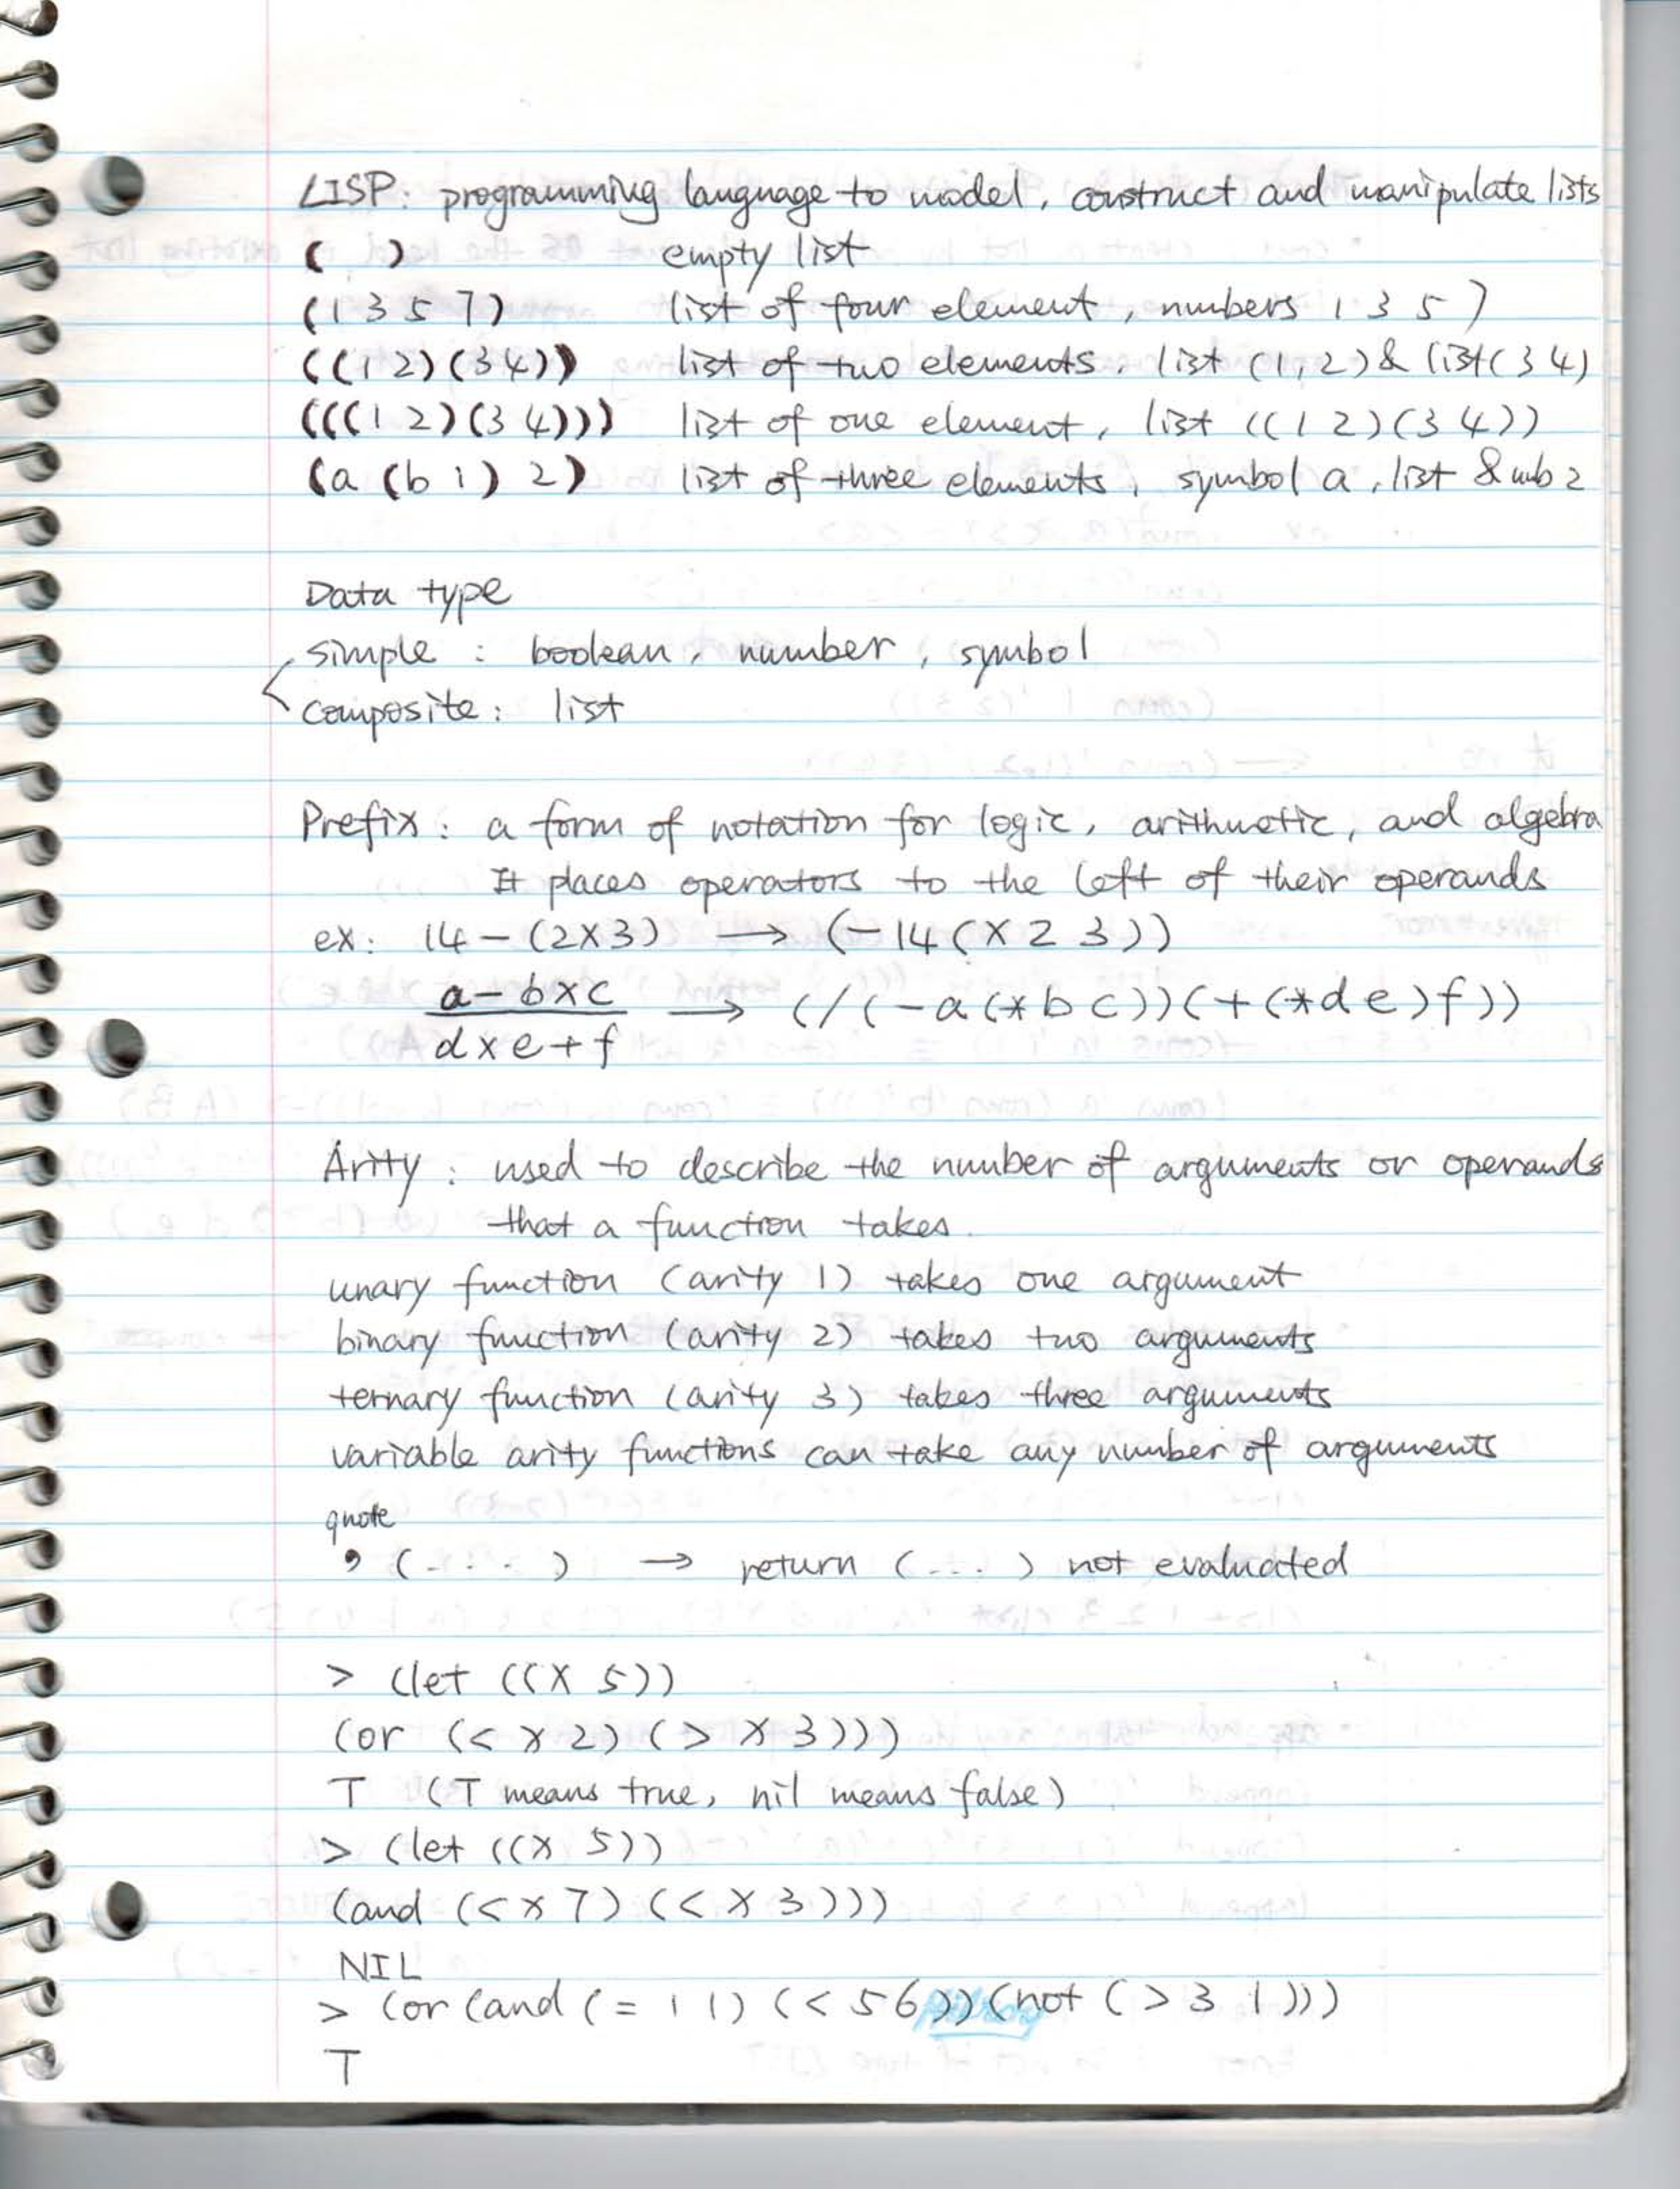 LISP: programming language to model, construct and manipulate lists
( ) empty list
(1 3 5 7) list of four element, numbers 1 3 5 7
((1 2)(3 4)) list of two elements, list (1,2) & list(3 4)
(((1 2)(3 4))) list of one element, list ((1 2)(3 4))
(a (b 1) 2) list of three elements, symbol a, list & nub 2
Data type
simple : boolean, number, symbol
composite: list
Prefix: a form of notation for logic, arithmetic, and algebra
It places operators to the left of their operands
ex: 14-(2×3) → (-14(×2 3))
a-b×c
d×e+f → (/(-a(*b c))(+(*d e)f))
Arity: used to describe the number of arguments or operands
that a function takes.
unary function (arity 1) takes one argument
binary function (arity 2) takes two arguments
ternary function (arity 3) takes three arguments
variable arity functions can take any number of arguments
quote
' (....) → return (...) not evaluated
> (let ((x 5))
(or (< x 2) (> x 3)))
T (T means true, nil means false)
> (let ((x 5))
(and (< x 7) (< x 3)))
NIL
> (or (and (= 1 1) (< 5 6)) (not (> 3 1)))
T